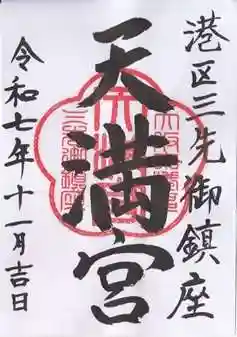 港区三先御鎮座
天満宮
令和七年十一月吉日